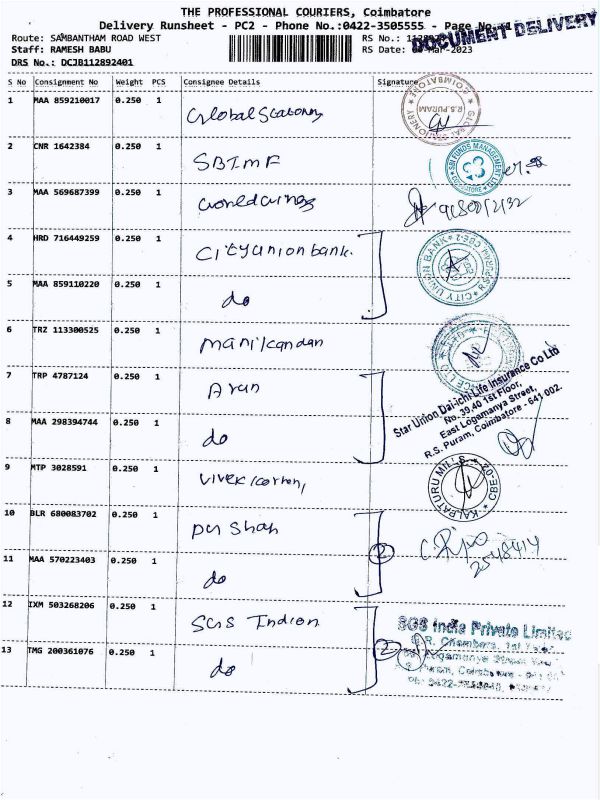 THE PROFESSIONAL COURIERS, Coimbatore
Delivery Runsheet - PC2 - Phone No.:0422-3505555 - Page No.:1
DOCUMENT DELIVERY
Route: SAMBANTHAM ROAD WEST
RS No.:
Staff: RAMESH BABU
RS Date: -2023
DRS No.: DCJB112892401
S No Consignment No Weight PCS Consignee Details Signature
1 MAA 859210017 0.250 1 Global Stationery
GLOBAL STATIONERY COIMBATORE R.S.PURAM
2 CNR 1642384 0.250 1 SBIMF
SBI FUNDS MANAGEMENT
3 MAA 569687399 0.250 1
4 HRD 716449259 0.250 1 City union bank.
CITY UNION BANK R.S.PURAM CBE-2
5 MAA 859110220 0.250 1 do
6 TRZ 113300525 0.250 1 Manikandan
7 TRP 4787124 0.250 1 Arun
Star Union Dai-ichi Life Insurance Co Ltd
No. 39,40 1st Floor,
East Logamanya Street,
R.S. Puram, Coimbatore - 641 002.
8 MAA 298394744 0.250 1 do
9 MTP 3028591 0.250 1
KALPATURU MILLS CBE-02
10 BLR 680083702 0.250 1 Shah
2548414
11 MAA 570223403 0.250 1 do 2
12 IXM 503268206 0.250 1 SGS Indian
SGS India Private Limited
R. Chambers, 1st Floor
Logamanya Street
Puram, Coimbatore
13 TMG 200361076 0.250 1 do 2